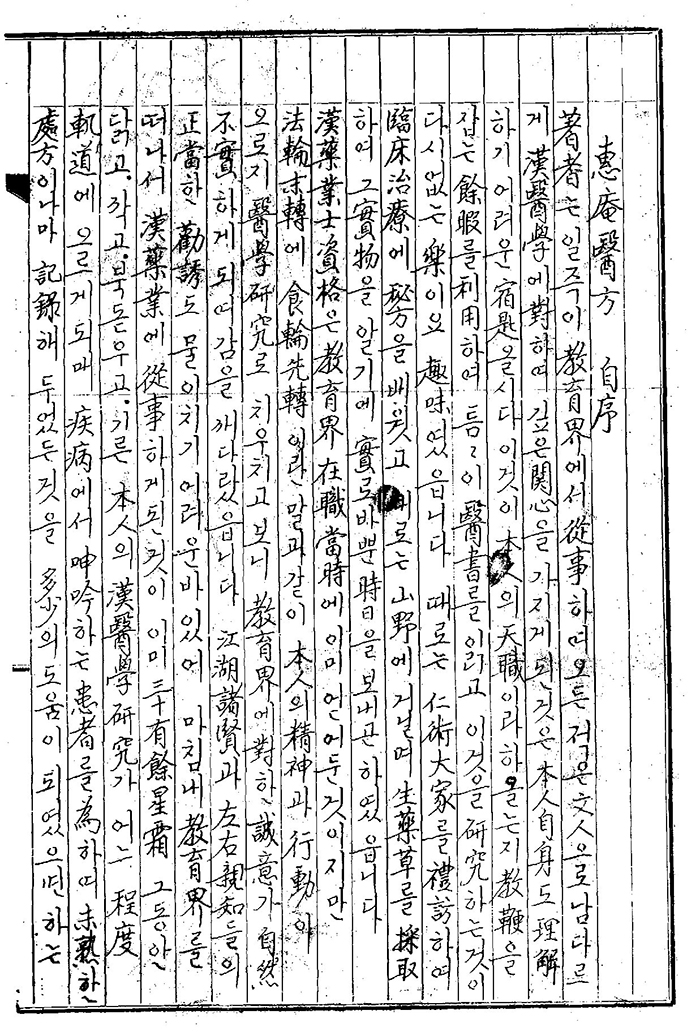 惠庵醫方 自序
著者는 일즉이 教育界에서 從事하며 오든 적은 文人으로 남다르
게 漢醫學에 對하여 깊은 関心을 가지게 된 것은 本人自身도 理解
하기 어려운 宿題올시다 이것이 本人의 天職이라 하올는지 教鞭을
잡는 餘暇를 利用하여 틈틈이 醫書를 읽고 이것을 研究하는 것이
다시 없는 樂이요 趣味였읍니다 때로는 仁術大家를 禮訪하여
臨床治療에 秘方을 배웠고 때로는 山野에 거닐며 生藥草를 採取
하여 그 實物을 알기에 實로 바쁜 時日을 보내곤 하였읍니다
漢藥業士 資格은 教育界 在職 當時에 이미 얻어둔 것이지만
法輪未轉에 食輪先轉이란 말과 같이 本人의 精神과 行動이
오로지 醫學研究로 치우치고 보니 教育界에 對한 誠意가 自然
不實하게 되여감을 깨다랐읍니다 江湖諸賢과 左右親知들의
正當한 勸誘도 물이치기 어려운 바 있어 마침내 教育界를
떠나서 漢藥業에 從事하게 된 것이 이미 三十有餘星霜 그동안
닭고 깍고 북돋우고 기른 本人의 漢醫學研究가 어느 程度
軌道에 오르게 도마 疾病에서 呻吟하는 患者를 為하여 未熟한
處方이나마 記錄해 두었든 것을 多少의 도움이 되였으면 하는